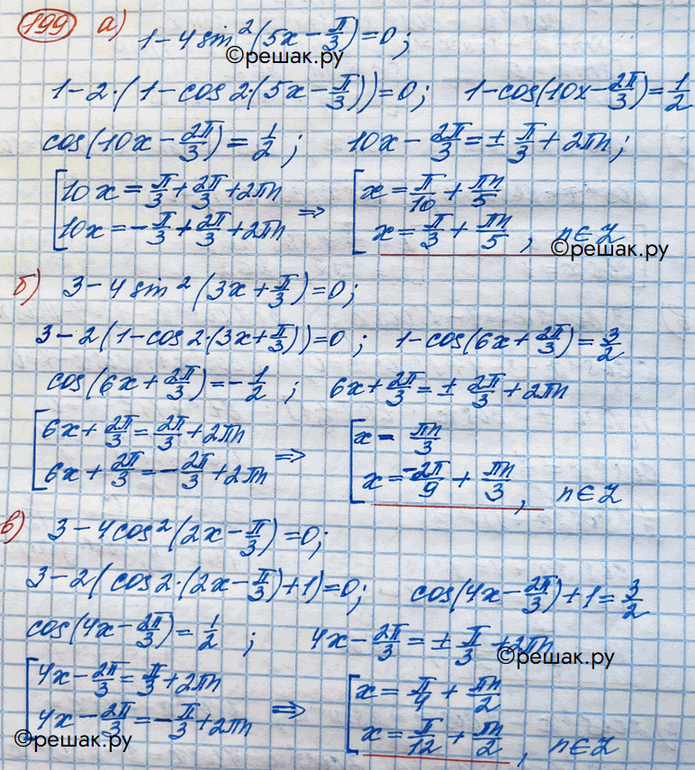 199 а) 1-4 sin²(5x-π/3)=0;
©решак.ру
1-2·(1-cos 2·(5x-π/3))=0; 1-cos(10x-2π/3)=1/2
cos(10x-2π/3)=1/2; 10x-2π/3=±π/3+2πn;
[10x=π/3+2π/3+2πn ⇒ [x=π/10+πn/5
10x=-π/3+2π/3+2πn x=π/3+πn/5, n∈Z
©решак.ру
б) 3-4 sin²(3x+π/3)=0;
3-2(1-cos2·(3x+π/3))=0; 1-cos(6x+2π/3)=3/2
cos(6x+2π/3)=-1/2; 6x+2π/3=±2π/3+2πn
[6x+2π/3=2π/3+2πn ⇒ [x=πn/3
6x+2π/3=-2π/3+2πn x=-2π/9+πn/3, n∈Z
в) 3-4cos²(2x-π/3)=0;
3-2(cos2·(2x-π/3)+1)=0; cos(4x-2π/3)+1=3/2
cos(4x-2π/3)=1/2; 4x-2π/3=±π/3+2πn
©решак.ру
[4x-2π/3=π/3+2πn ⇒ [x=π/4+πn/2
4x-2π/3=-π/3+2πn x=π/12+πn/2, n∈Z
©решак.ру